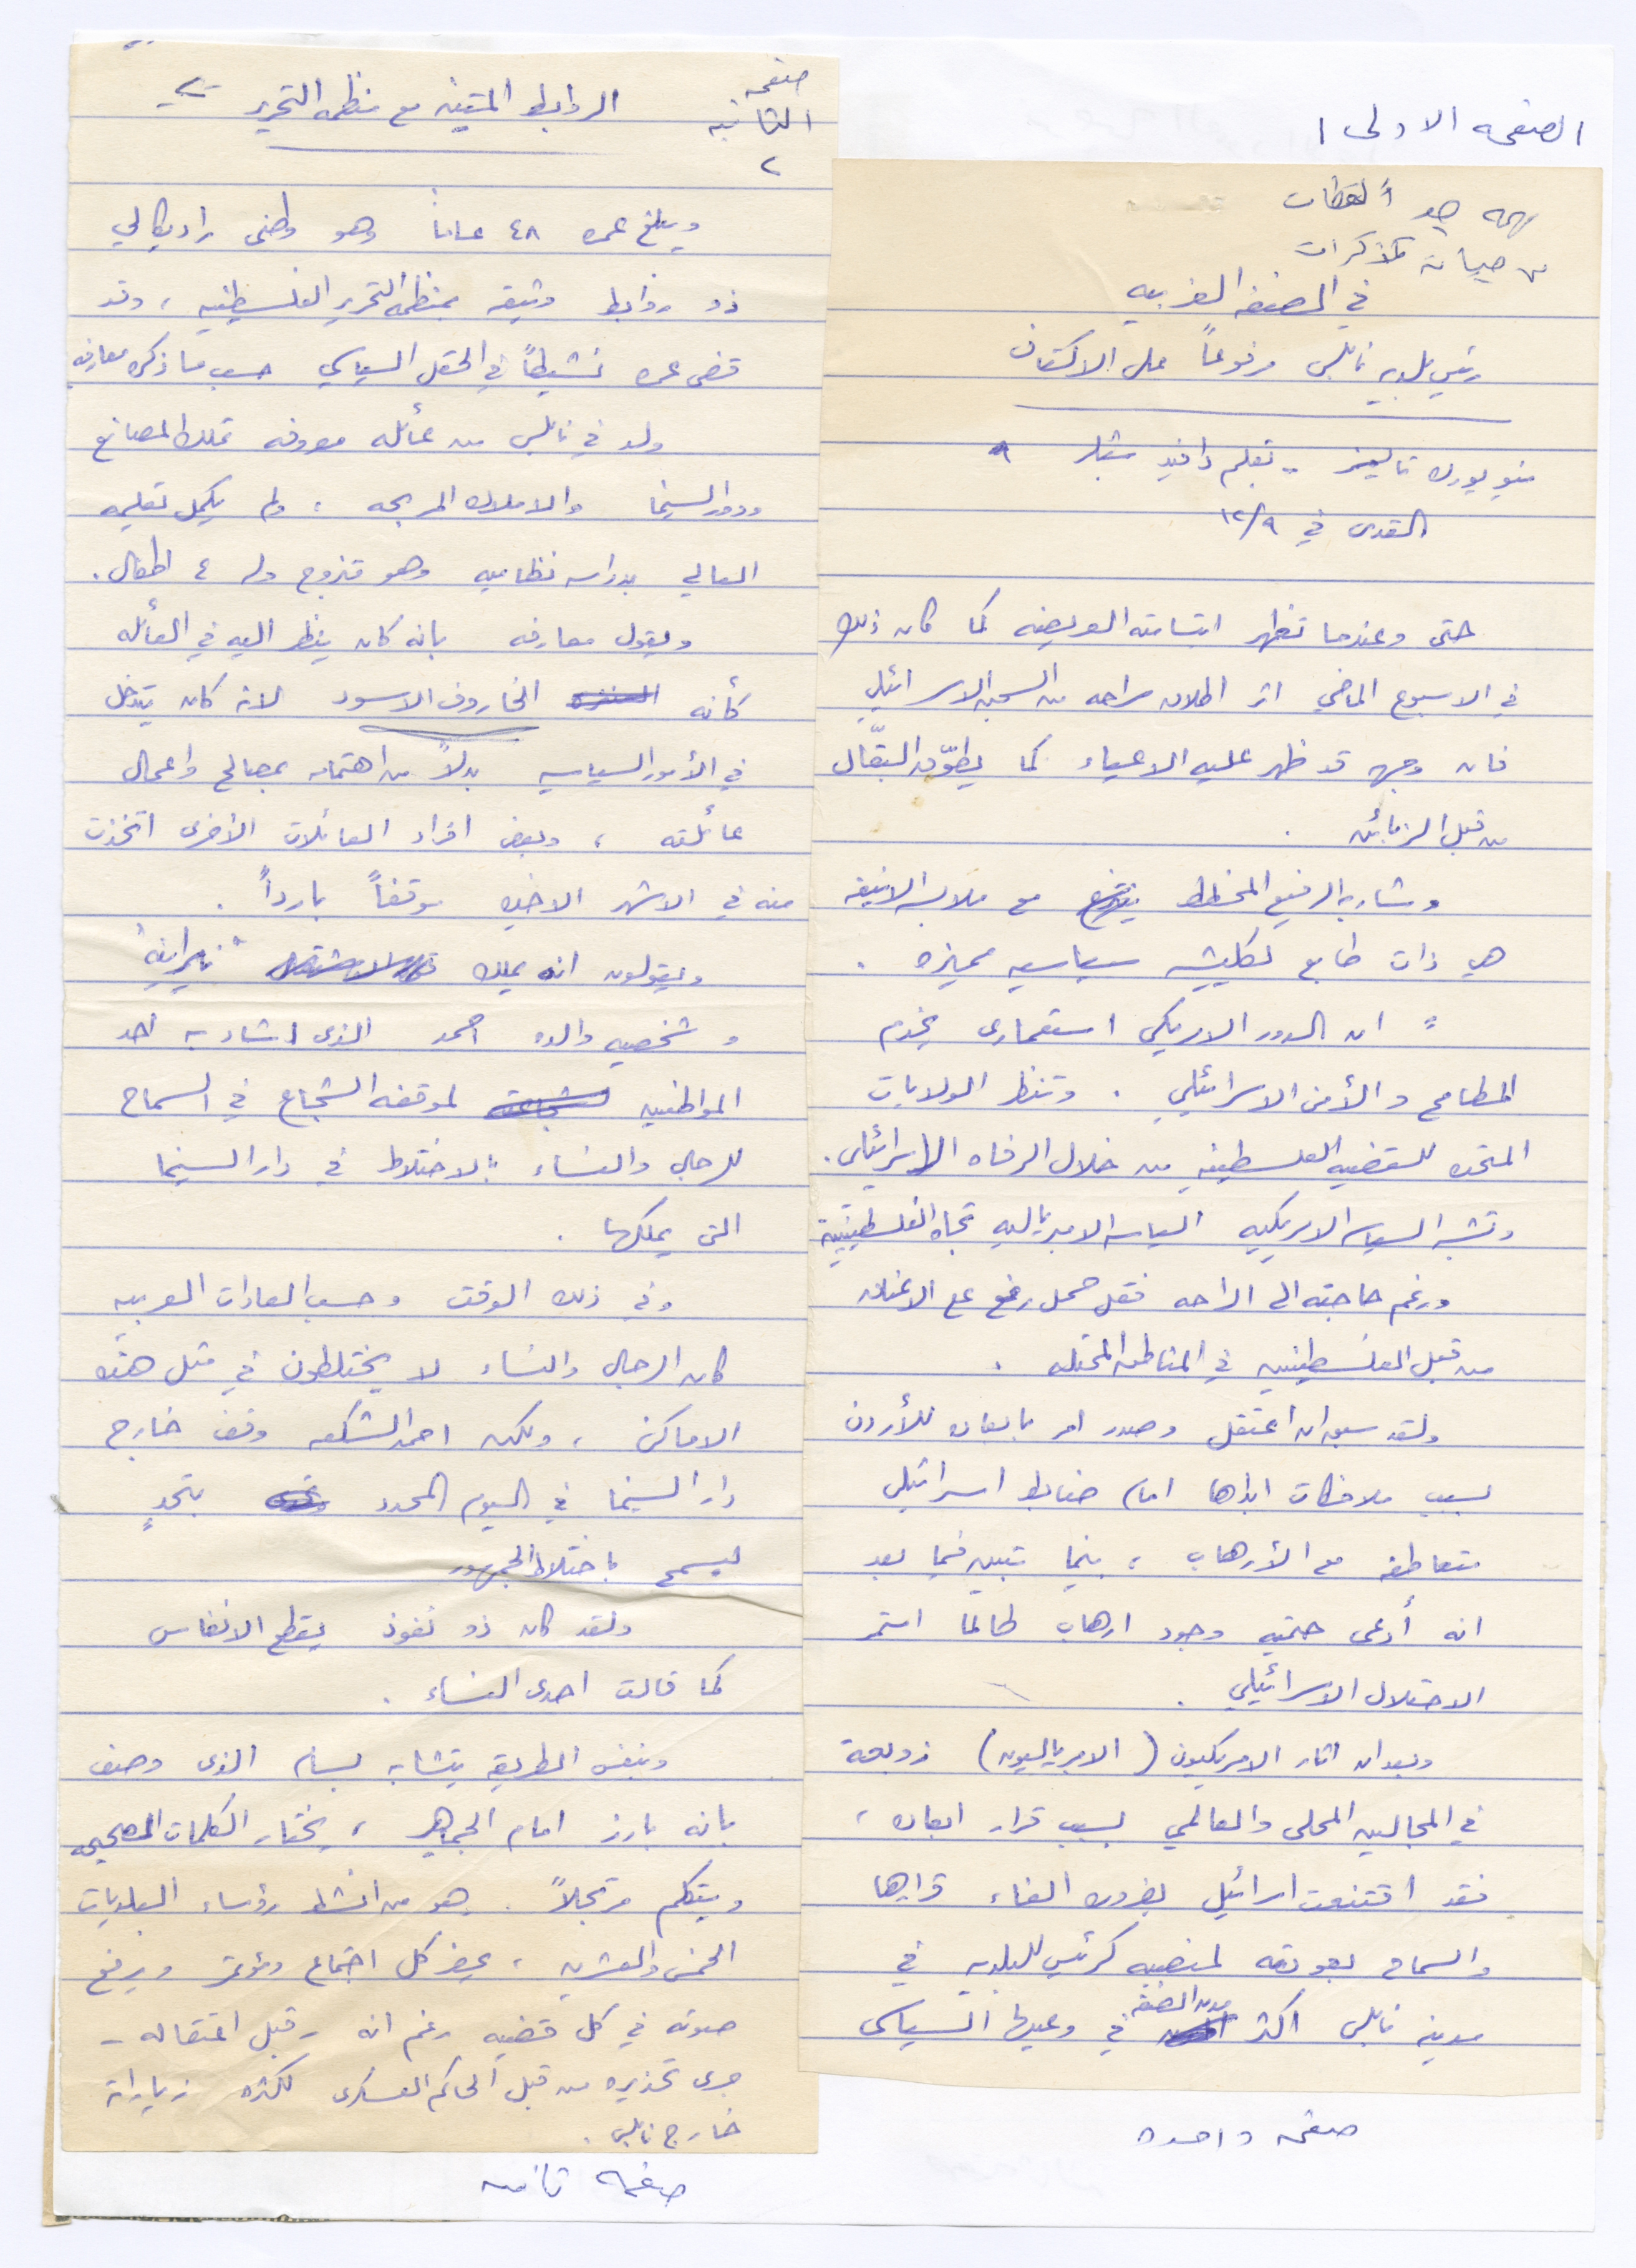 الصفحه الاولى ١
لهجه هو ألقطات
من حياته مذكرات
في الضفه الغربيه
رئيس بلديه نابلس مرفوعاً على الاكتاف
نيويورك تايمز - بقلم دافيد شبلر
القدس في ١٢/٩
حتى وعندما تظهر ابتسامته العريضه كما كان ذلك
في الاسبوع الماضي اثر اطلاق سراحه من السجن الاسرائيلي
فان وجهه قد ظهر عليه الاعياء كما يطوّق البقّال
من قبل الزبائن .
وشاربه الرفيع المخطط مع ملابسه الانيقه
هي ذات طابع لكليشه سياسيه مميزه .
" ان الدور الامريكي استعماري يخدم
المطامح والأمن الاسرائيلي . وتنظر الولايات
المتحده للقضيه الفلسطينيه من خلال الرفاه الاسرائيلي .
وتشبه السياسه الامريكيه السياسه الامبرياليه تجاه الفلسطينيين
ورغم حاجته الى الراحه فقد حمل رفع على الاعناق
من قبل الفلسطينيين في المناطق المحتله .
ولقد سبق ان اعتقل وصدر امر بابعاده للأردن
بسبب ملاحظات ابداها امام ضابط اسرائيلي
متعاطفه مع الأرهاب ، بينما تبين فيما بعد
انه أدعى حتميه وجود ارهاب طالما استمر
الاحتلال الاسرائيلي .
وبعد ان اثار الامريكيون ( الامبرياليون ) زوبعة
في المجالين المحلى والعالمي بسبب قرار ابعاده ،
فقد اقتنعت اسرائيل بضروره الغاء قرارها
والسماح بعودته لمنصبه كرئيس للبلديه في
مدينه نابلس اكثر مدن الضفه في وعيها السياسى
صفحه واحده
صفحه
الثانيه
٢
الروابط المتينه مع منظمه التحرير -٢-
ويبلغ عمره ٤٨ عاماً وهو وطنى راديكالي
ذو روابط وثيقه بمنظمه التحرير الفلسطينيه ، وقد
قضى عمره نشيطاً في الحقل السياسي حسب ما ذكره معارفه
ولد في نابلس من عائله معروفه تملك المصانع
ودور السينما والاملاك المربحه ، ولم يكمل تعليمه
العالي بدراسه نظاميه وهو متزوج وله ٤ اطفال .
ويقول معارفه بانه كان ينظر اليه في العائله
كأنه الخاروف الاسود لانه كان يتدخل
في الأمور السياسيه بدلاً من اهتمامه بمصالح واعمال
عائلته ، وبعض افراد العائلات الأخرى اتخذت
منه في الاشهر الاخيره موقفاً بارداً .
ويقولون انه يملك "نيرانيه"
وشخصيه والده احمد الذى اشاد به احد
المواطنين لموقفه الشجاع في السماح
للرجال والنساء بالاختلاط في دار السينما
التى يملكها .
وفي ذلك الوقت وحسب العادات العربيه
كان الرجال والنساء لا يختلطون في مثل هذه
الاماكن ، ولكن احمد الشكعه وقف خارج
دار السينما في اليوم المحدد بتحدٍ
ليسمح باختلاط الجمهور
ولقد كان ذو نفوذ يقطع الانفاس
كما قالت احدى النساء .
وبنفس الطريقه يتشابه بسام الذى وصف
بانه بارز امام الجماهير ، يختار الكلمات الصحيحه
ويتكلم مرتجلاً . هو من انشط رؤساء البلديات
الخمس والعشرين ، يحضر كل اجتماع ومؤتمر ويرفع
صوته في كل قضيه رغم انه - قبل اعتقاله -
جرى تحذيره من قبل الحاكم العسكرى لكثره زياراته
خارج نابلس .
صفحه ثانيه